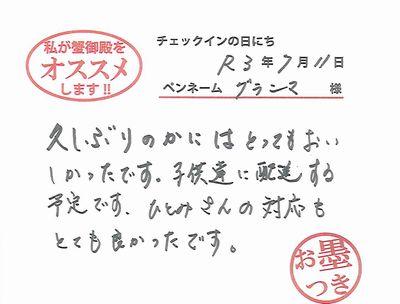 私が蟹御殿を
オススメ
します!!
チェックインの日にち
R3年7月11日
ペンネーム グランマ 様
久しぶりのかにはとってもおい
しかったです。子供達に配送する
予定です、ひとみさんの対応も
とても良かったです。
お墨
つき